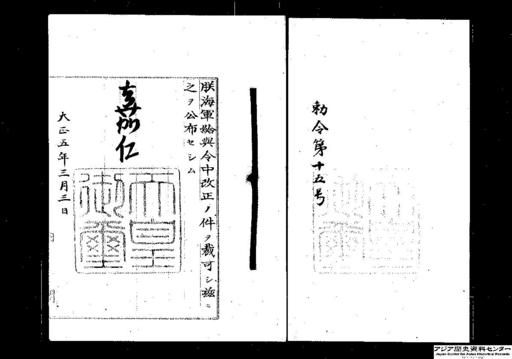 勅令第十五号
朕海軍給與令中改正ノ件ヲ裁可シ茲ニ
之ヲ公布セシム
嘉仁
天皇御璽
大正五年三月三日
アジア歴史資料センター
Japan Center for Asian Historical Records